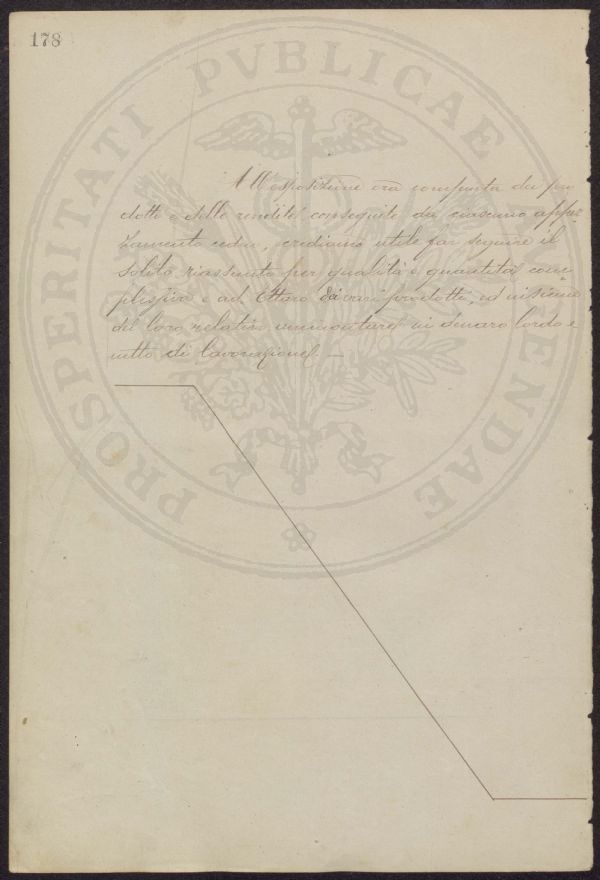 178
All'esposizione ora compiuta dei pro
dotti e delle rendite conseguite da ciascuno appez
zamento, crediamo utile far seguire il
solito riassunto per qualità e quantità com
plessiva e ad Ettaro dei vari prodotti, ed insieme
del loro relativo ammontare in denaro lordo e
netto di lavorazione. —
PROSPERITATI PVBLICAE AVGENDAE